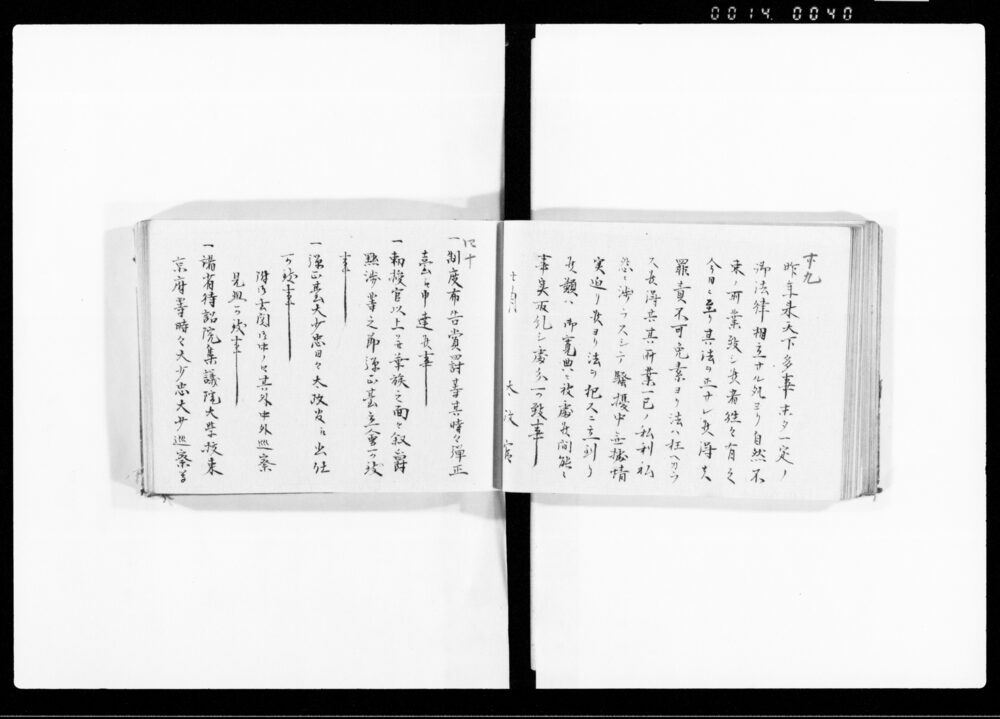 0014 0040
卅九
昨年来天下多事未タ一定ノ
御法律相立サル処ヨリ自然不
束ノ所業致シ候者往々有之
今日ニ至リ其法ヲ正サレ候得ハ
罪責不可免素ヨリ法ハ枉ヘカラ
ス候得共其所業一己ノ私利私
怨ニ渉ラスシテ騒擾中無拠情
実迫リ候ヨリ法ヲ犯スニ立到リ
候類ハ御寛典ニ被處候間能々
事実取糺シ處分可致事
十月 太政官
四十
一制度布告賞罰等其時々弾正
臺ヘ申達候事
一勅授官以上并華族之面々叙爵
黜渉等之節弾正臺立會可致
事
一弾正臺大少忠日々太政官ヘ出仕
可致事
附
見廻可致事
一諸省待詔院集議院大学校東
京府等時々大少忠大少巡察等